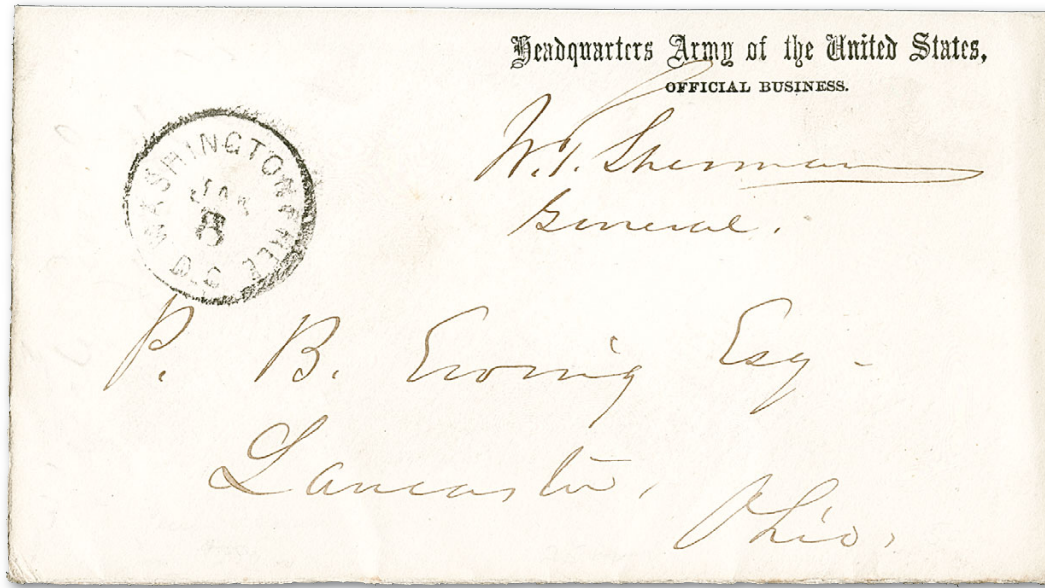 Headquarters Army of the United States,
OFFICIAL BUSINESS.
W. T. Sherman
General.
WASHINGTON FREE
JAN
8
D.C.
P. B. Ewing Esq-
Lancaster,
Ohio,